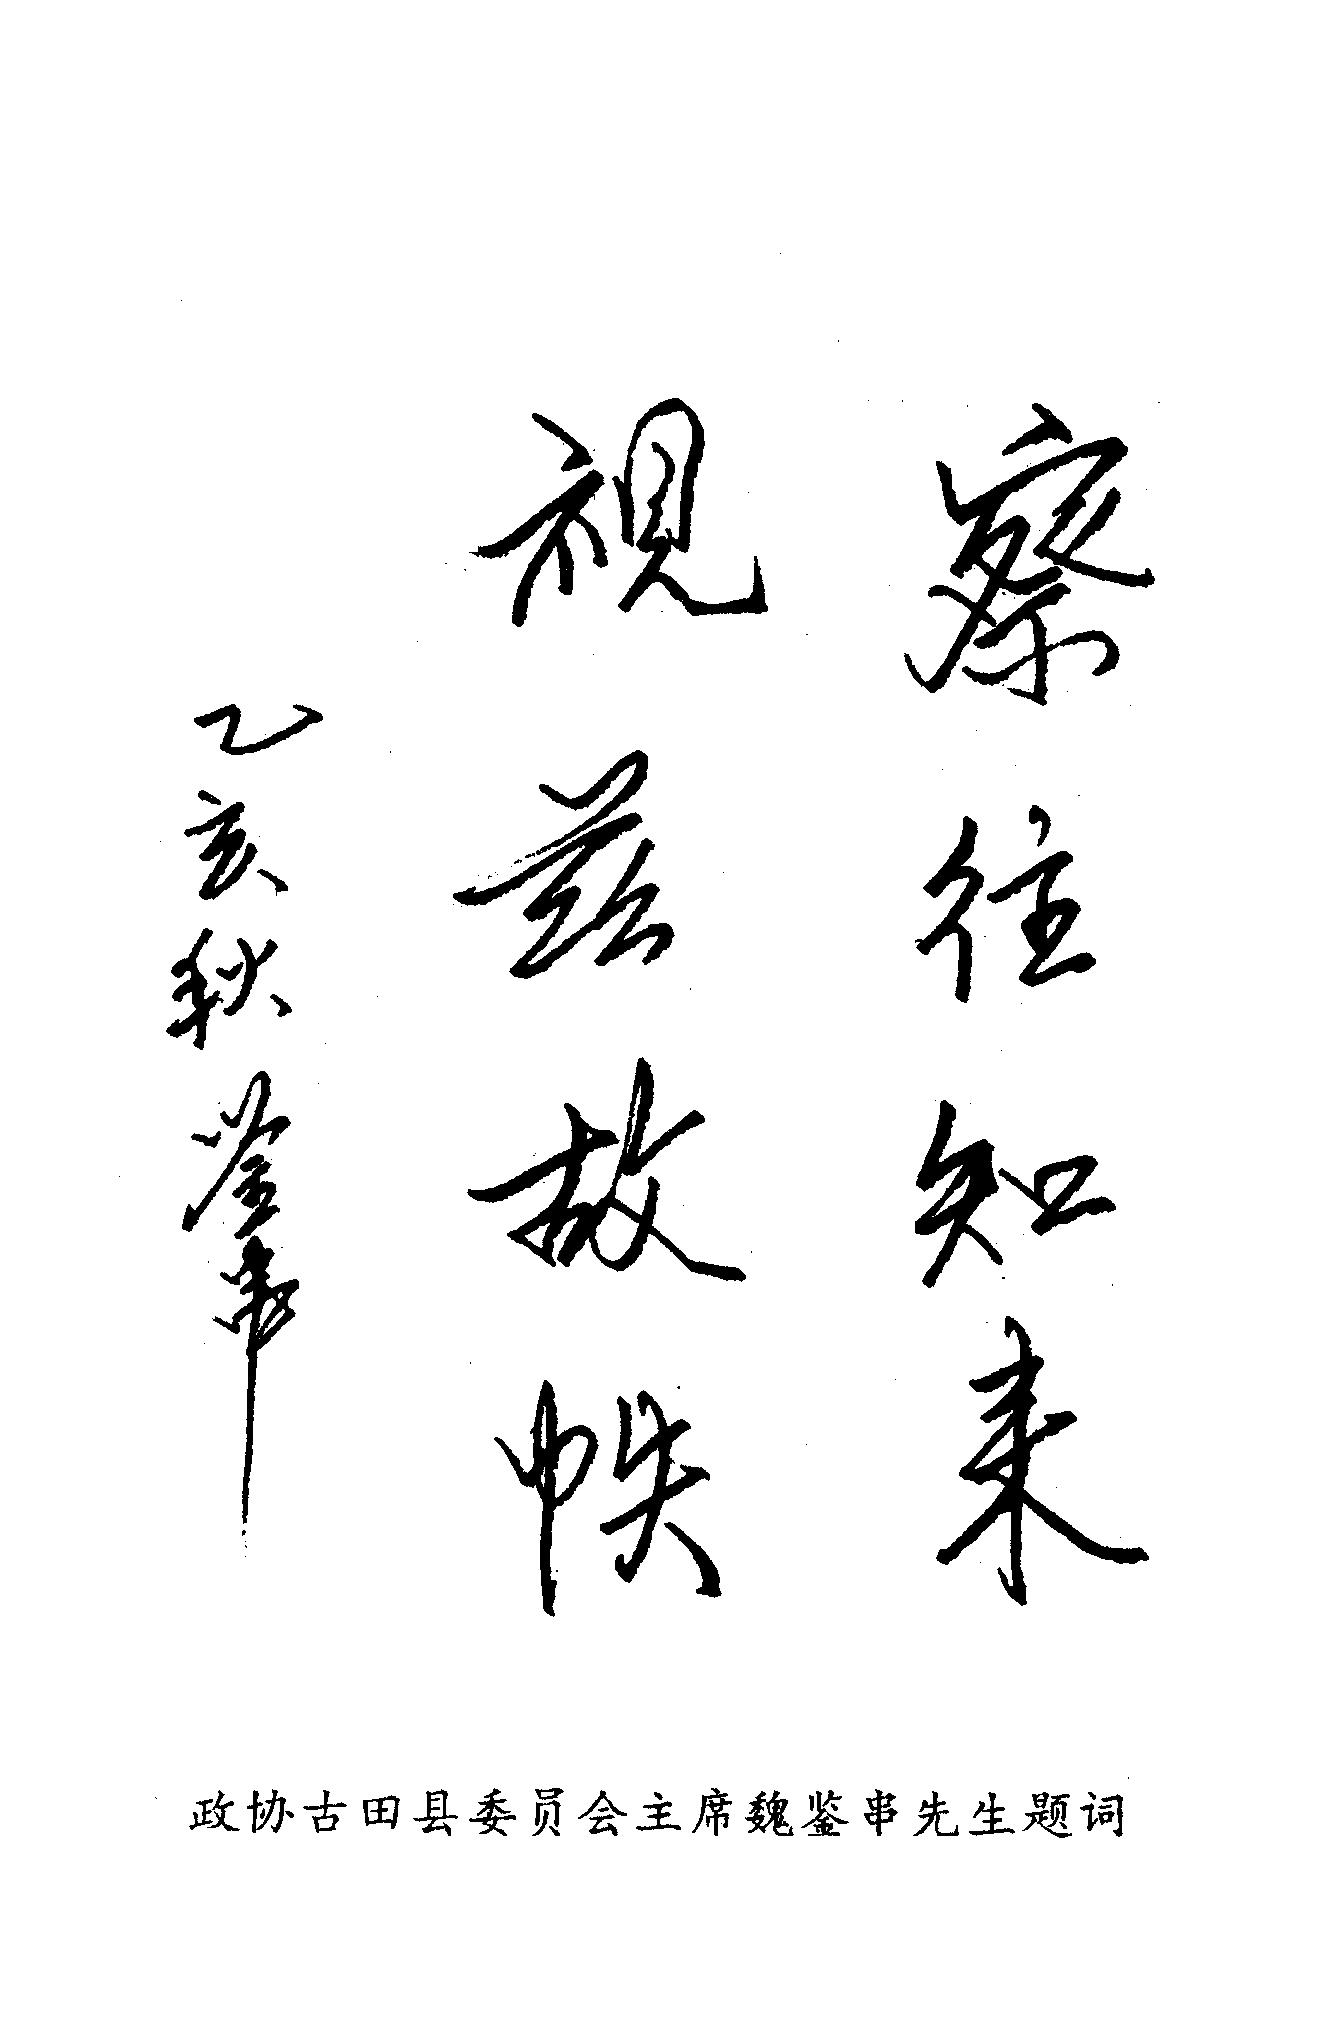 察往知来
視兹故帙
乙亥秋鉴串
政协古田县委员会主席魏鉴串先生题词